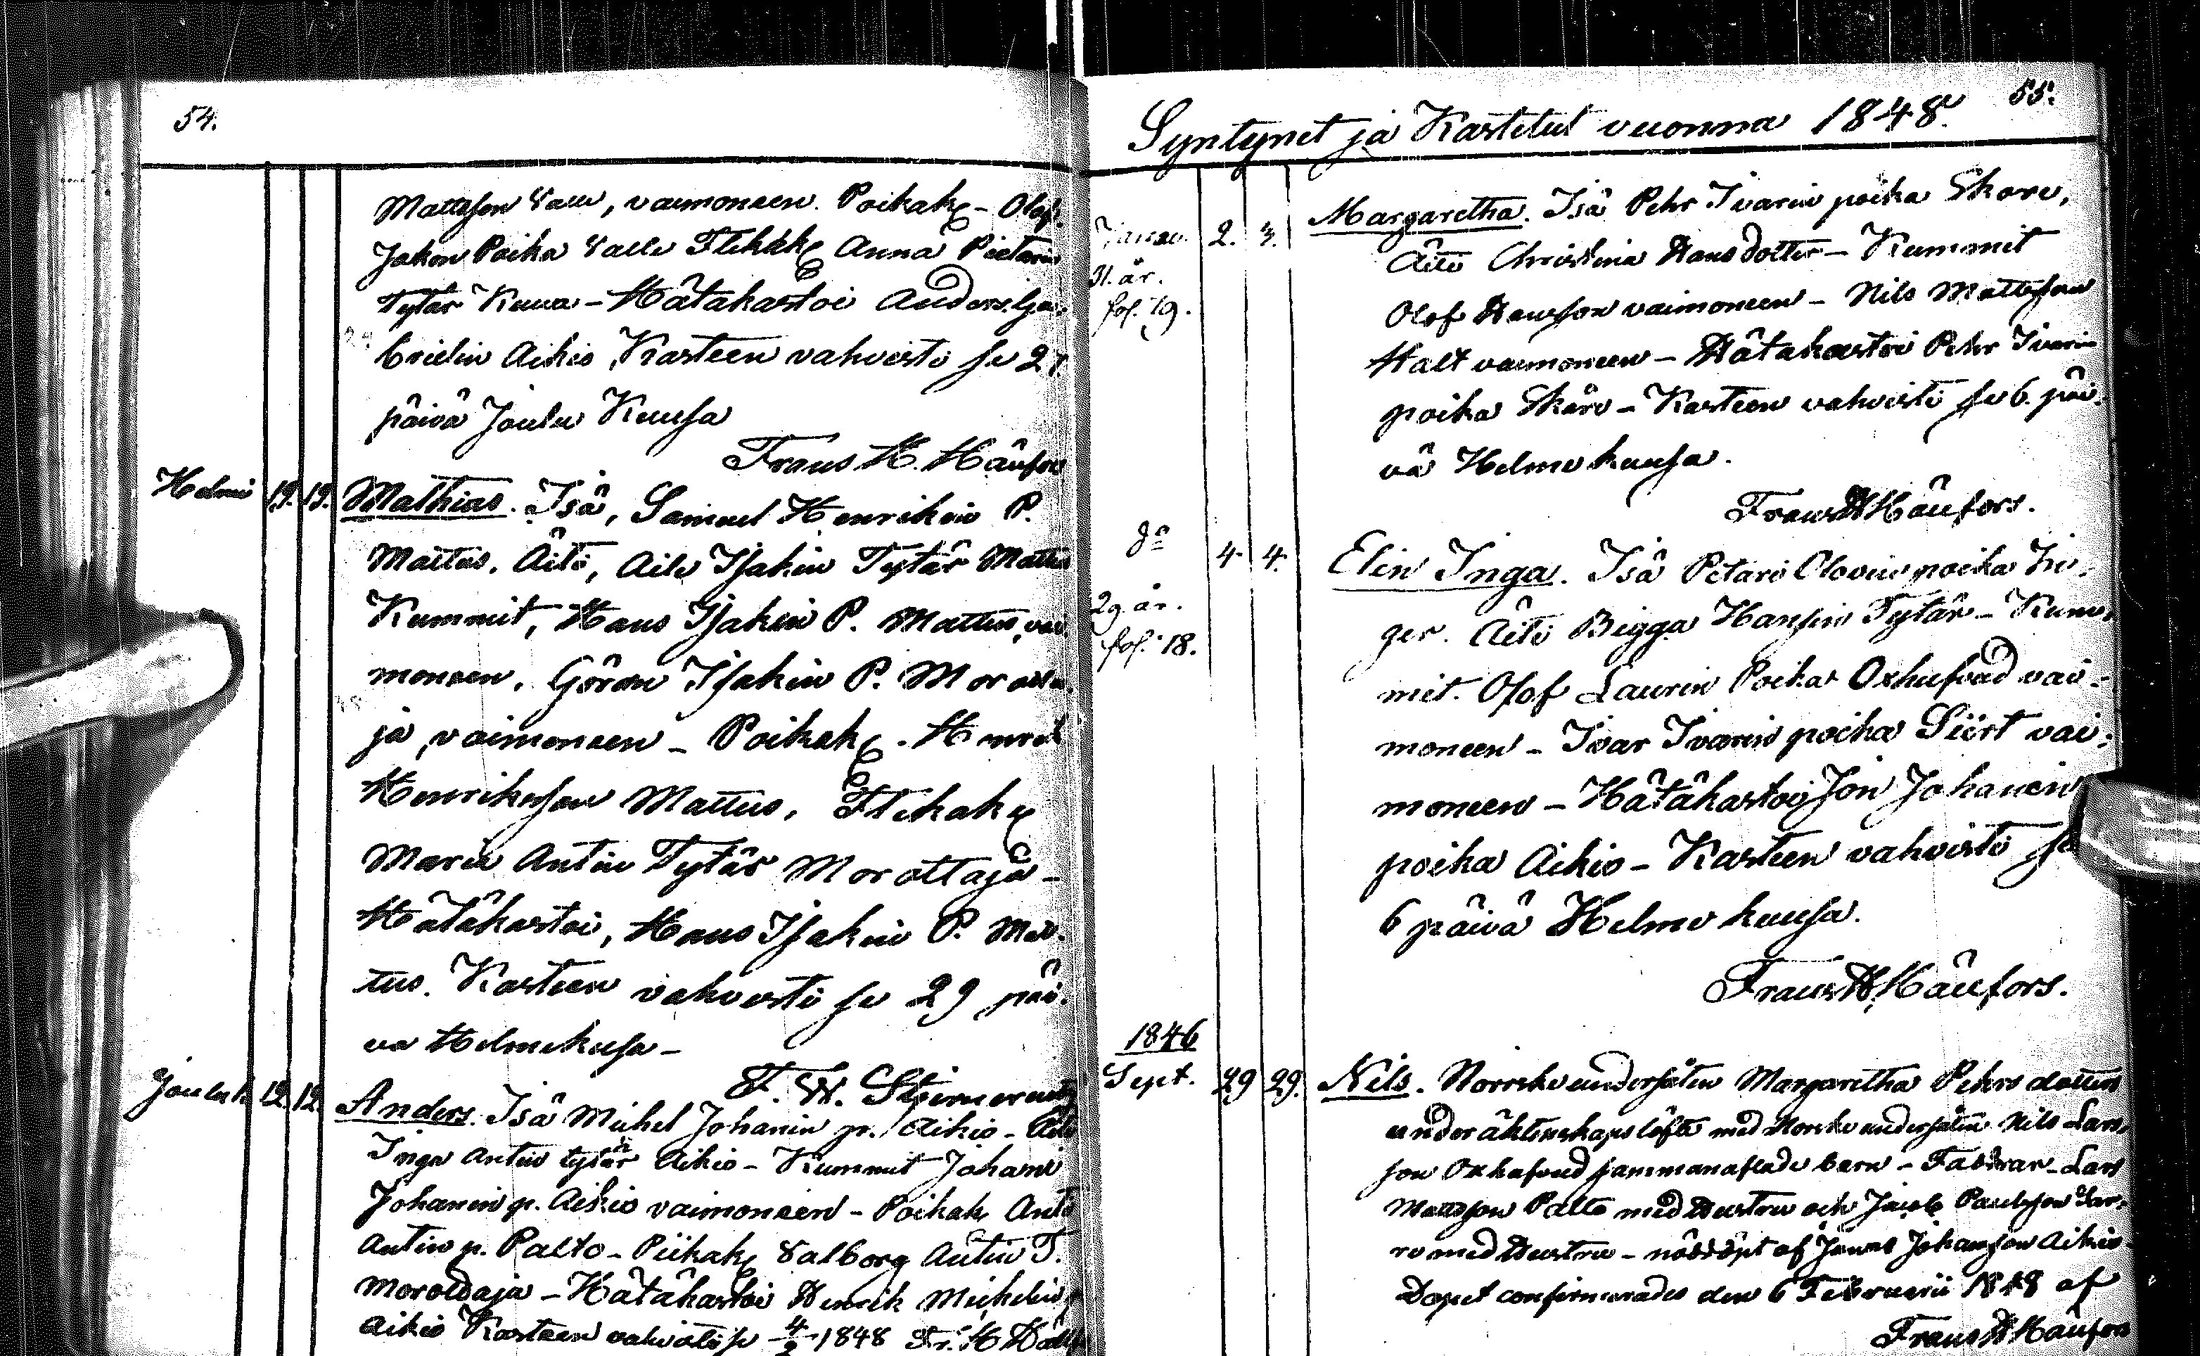 54.
Mattsson Valle, vaimoneen. Poikak - Olof
Jakon Poika Valle Flikak Anna Pietarin
Tytär Kuuva - Hätäkastoi Anders Ga,
brielin Aikio, Kasteen vahvisti se 27
päivä Joulu Kuusa
Frans H. Häufors
Helmi 19. 19. Mathias. Isä, Samuel Henrikin P.
Mattus. Äiti, Aile Isakin Tytär Mattus
Kummit, Hans Isakin P. Mattus, vai
moneen. Göran Isakin P. Morotta
ja, vaimoneen - Poikak. Henrik
Henriksson Mattus. Flikak
Maria Antin Tytär Morottaja -
Hätäkastoi, Hans Isakin P. Mat-
tus. Kasteen vahvisti se 29 päi.
vä Helmekusa -
F. W. Stjerncreutz
Jouluk. 12. 12. Anders. Isä Michel Johanin p. Aikio - Äiti
Inga Antin tytär Aikio - Kummit Johani
Johanin p. Aikio vaimoneen - Poikak Anti
Antin p. Palto - Piikak Valborg Antin T.
Morottaja - Hätäkastoi Henrik Michelin p
Aikio Kasteen vahvisti se 4/2 1848 Fr. H Häuf
55.
Syntynet ja Kastetut vuonna 1848.
Januar. 2. 3. Margaretha. Isä Pehr Ivarin poika Skore,
31. år. Äiti Christina Hansdotter - Kummit
fol. 19. Olof Hansson vaimoneen - Nils Mattsson
Halt vaimoneen - Hätäkastoi Pehr Ivarin
poika Skåre - Kasteen vahvisti se 6. päi.
vä Helme kuusa.
Frans H Häufors.
do 4. 4. Elin Inga. Isä Petari Olovin poika In-
29. år. ger. Äiti Bigga Hansin Tytär - Kum,
fol. 18. mit. Olof Laurin Poika Oxhufvud vai-
moneen - Ivar Ivarin poika Siirt vai-
moneen - Hätäkastoi Jon Johanin
poika Aikio - Kasteen vahvisti se
6 päivä Helme kuusa.
Frans H Häufors.
1846
Sept. 29 29. Nils. Norrske undersåten Margaretha Pehrs dotters
under äktenskaps löfte med Norske undersåten Nils Lars,
son Oxhufvud sammanaflade barn - Faddrar - Lars
Mattsson Palto med Hustru och Jacob Paulsson Sar,
re med Hustru - nöddöpt af Jonas Johansson Aikio
Dopet confirmerades den 6 Februarii 1848 af
Frans H Häufors